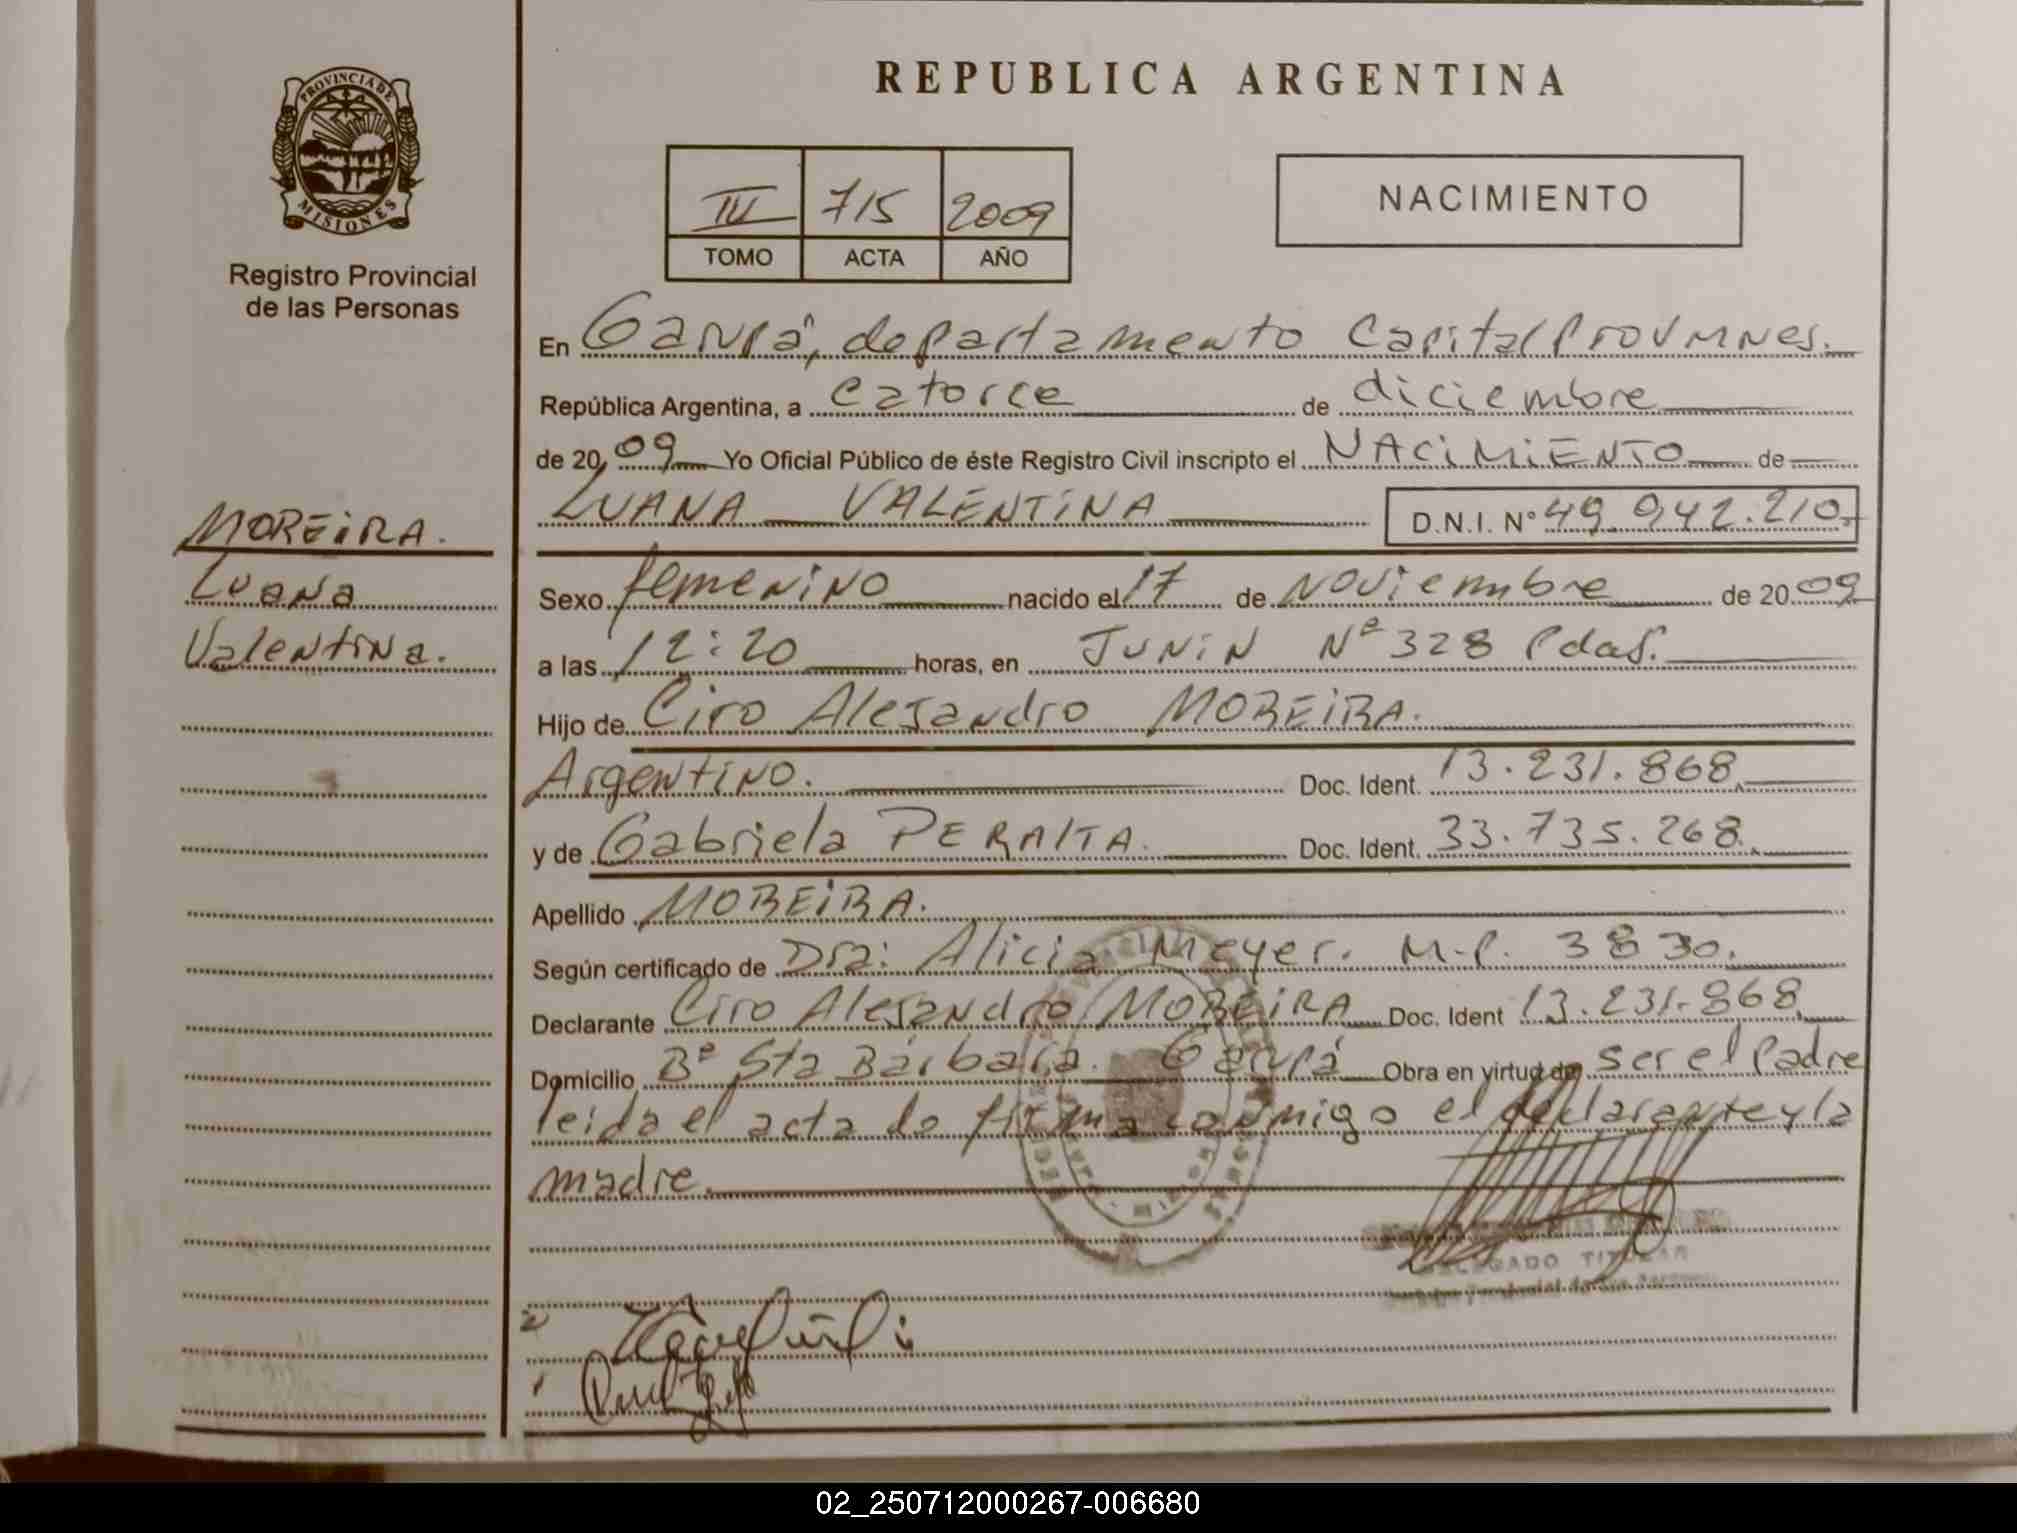 PROVINCIA DE
MISIONES
Registro Provincial
de las Personas
MOREIRA.
Luana
Valentina.
REPUBLICA ARGENTINA
IV 715 2009
TOMO ACTA AÑO
NACIMIENTO
En Garupá, departamento Capital Prov Mnes.
República Argentina, a catorce de diciembre
de 20 09 Yo Oficial Público de éste Registro Civil inscripto el NACIMIENTO de
LUANA VALENTINA D.N.I. N° 49.942.210.
Sexo femenino nacido el 17 de Noviembre de 20 09
a las 12:20 horas, en JUNIN Nº 328 Pdas.
Hijo de Ciro Alejandro MOREIRA.
Argentino. Doc. Ident. 13.231.868
y de Gabriela PERALTA. Doc. Ident. 33.735.268.
Apellido MOREIRA.
Según certificado de Dra: Alicia Meyer. M.P. 3830.
Declarante Ciro Alejandro MOREIRA Doc. Ident 13.231.868
Domicilio Bº Sta Bárbara. Garupá Obra en virtud de ser el Padre
leida el acta la firma conmigo el declarante y la
madre.
DELEGADO TITULAR
2
1
02_250712000267-006680